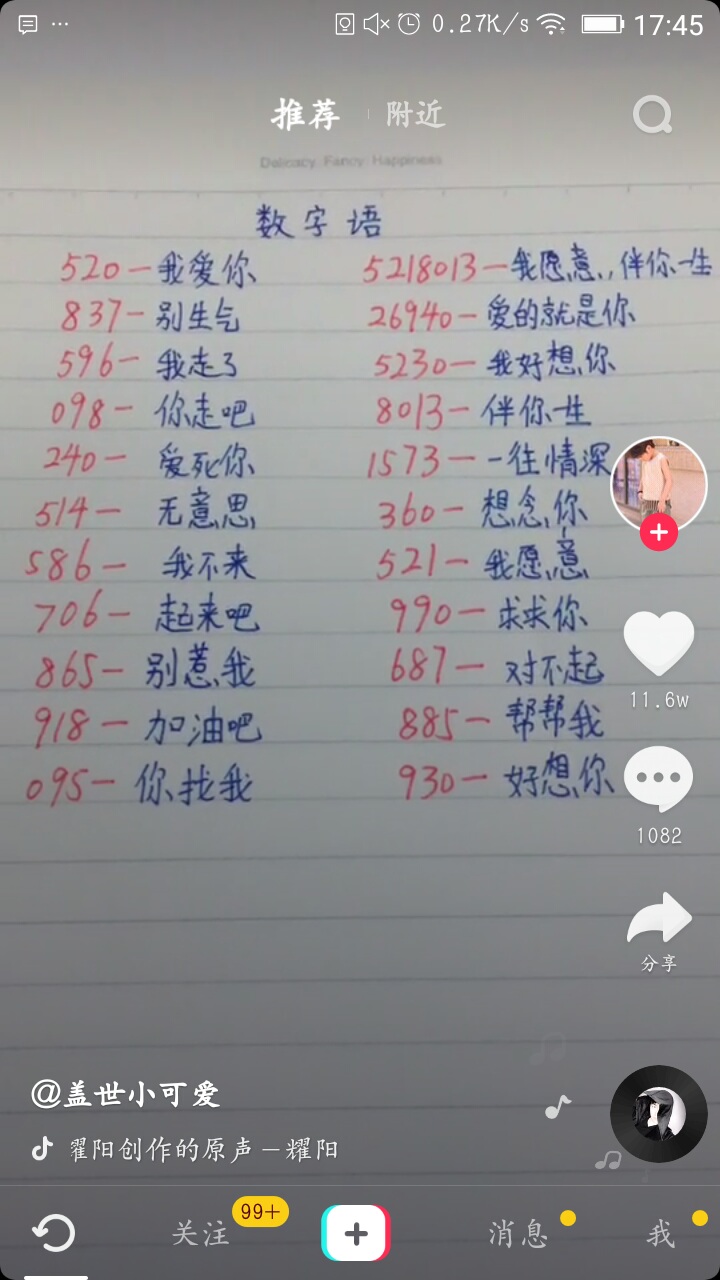 0.27K/s 17:45
推荐 附近
Delicacy Fancy Happiness
数字语
520—我爱你 5218013—我愿意,伴你一生
837—别生气 26940—爱的就是你
596—我走了 5230—我好想你
098—你走吧 8013—伴你一生
240—爱死你 1573—一往情深
514—无意思 360—想念你
586—我不来 521—我愿意
706—起来吧 990—求求你
865—别惹我 687—对不起
918—加油吧 885—帮帮我
095—你找我 930—好想你
11.6w
1082
分享
@盖世小可爱
翟阳创作的原声－耀阳
关注 99+ 消息 我